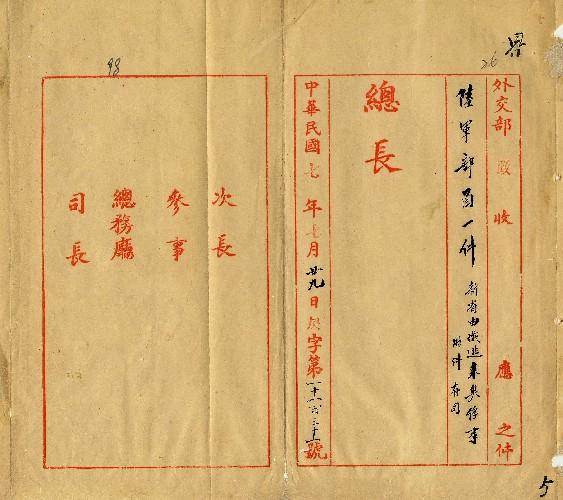 界
26
外交部 收 應 之件
陸軍部函一件 新省由俄逃來奧俘事
附件存司
總長
中華民國七年七月廿九日 字第 號
次長
參事
總務廳
司長
98
5